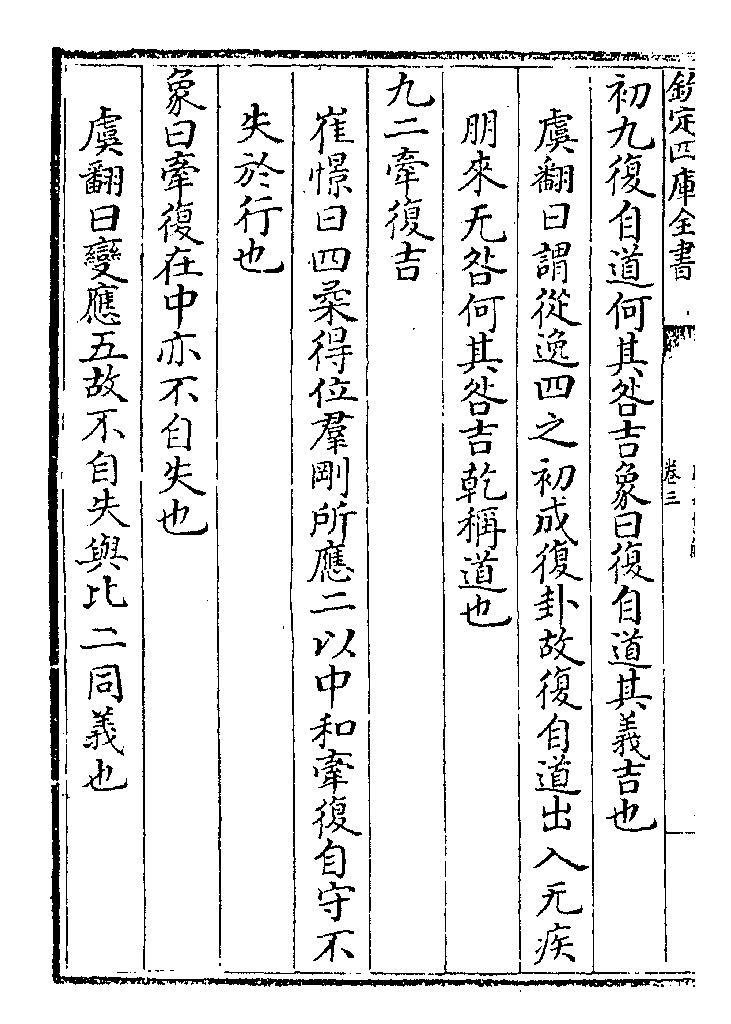 欽定四庫全書
卷三
初九復自道何其咎吉象曰復自道其義吉也
虞翻曰謂從逸四之初成復卦故復自道出入无疾
朋來无咎何其咎吉乾稱道也
九二牽復吉
崔憬曰四柔得位羣剛所應二以中和牽復自守不
失於行也
象曰牽復在中亦不自失也
虞翻曰變應五故不自失與比二同義也